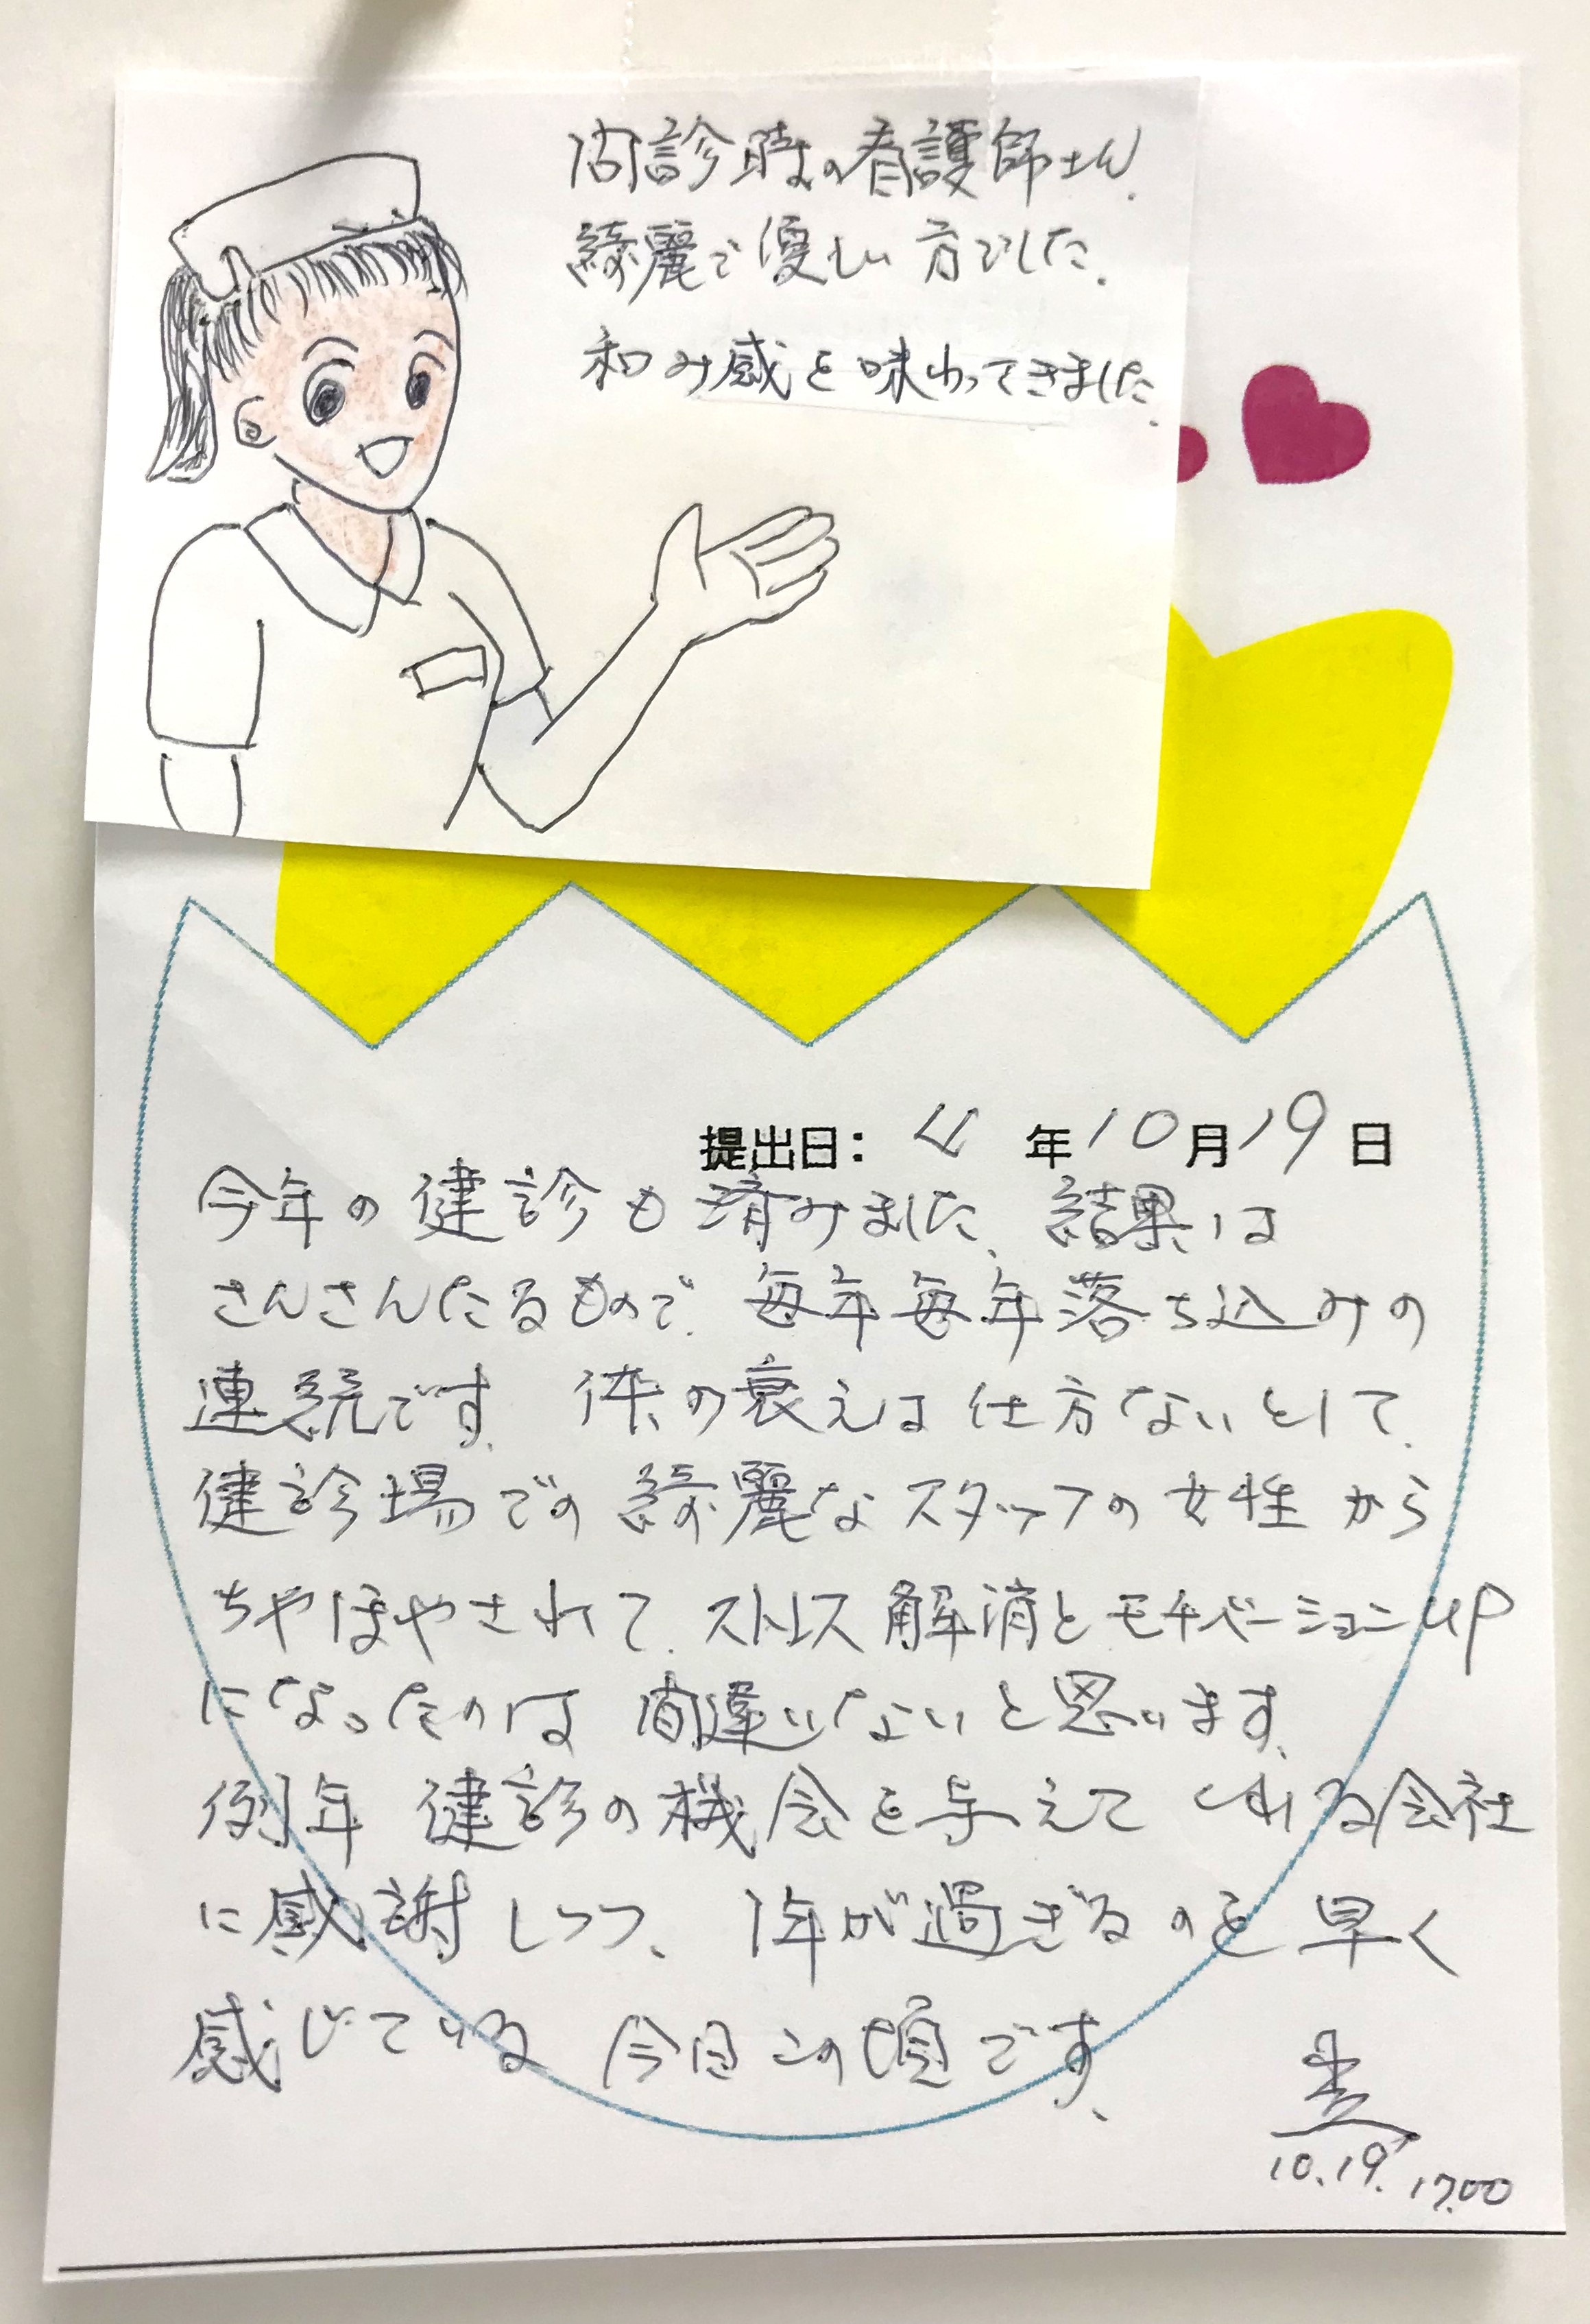 問診時の看護師さん、
綺麗で優しい方でした。
和み感を味わってきました。
提出日: 4年10月19日
今年の健診も済みました、結果は
さんさんたるもので、毎年毎年落ち込みの
連続です。体の衰えは仕方ないとして、
健診場での綺麗なスタッフの女性から
ちやほやされて、ストレス解消とモチベーションup
になったのは間違いないと思います。
例年健診の機会を与えてくれる会社
に感謝しつつ、1年が過ぎるのを早く
感じている今日この頃です、
10.19. 17.00